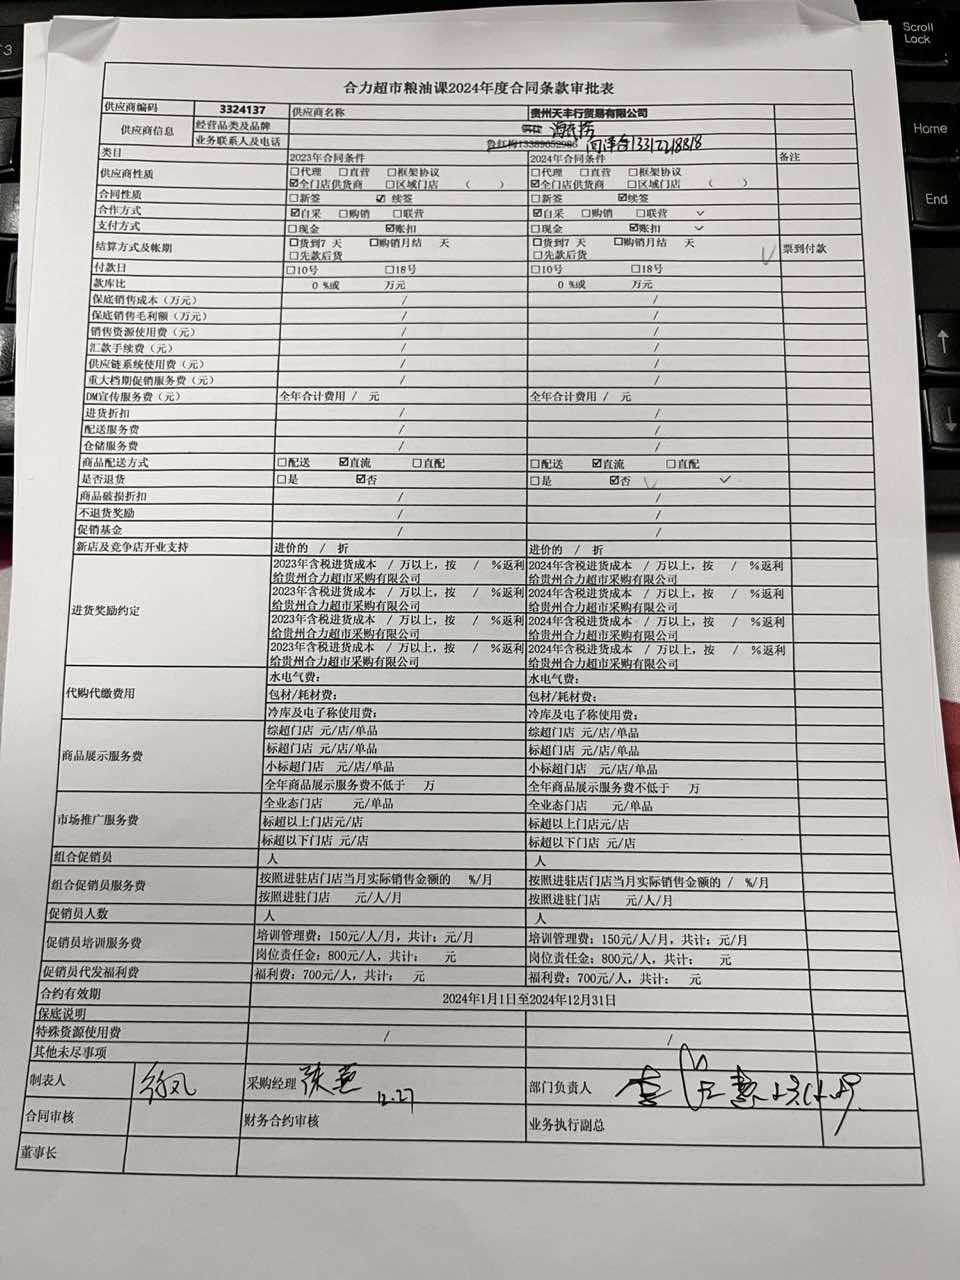 Scroll
Lock
Home
End
合力超市粮油课2024年度合同条款审批表
供应商编码 3324137 供应商名称 贵州天丰行贸易有限公司
供应商信息 经营品类及品牌
业务联系人及电话 鲁红梅13389652986 13312218818
类目 2023年合同条件 2024年合同条件 备注
供应商性质 □代理 □直营 □框架协议 □代理 □直营 □框架协议
☑全门店供货商 □区域门店 （ ） ☑全门店供货商 □区域门店 （ ）
合同性质 □新签 ☑续签 □新签 ☑续签
合作方式 ☑自采 □购销 □联营 ☑自采 □购销 □联营 ✓
支付方式 □现金 ☑账扣 □现金 ☑账扣 ✓
结算方式及帐期 □货到7 天 □购销月结 天 □货到7 天 □购销月结 天 ✓ 票到付款
□先款后货 □先款后货
付款日 □10号 □18号 □10号 □18号
款库比 0 %或 万元 0 %或 万元
保底销售成本（万元） / /
保底销售毛利额（万元） / /
销售资源使用费（元） / /
汇款手续费（元） / /
供应链系统使用费（元） / /
重大档期促销服务费（元） / /
DM宣传服务费（元） 全年合计费用 / 元 全年合计费用 / 元
进货折扣 / /
配送服务费 / /
仓储服务费 / /
商品配送方式 □配送 ☑直流 □直配 □配送 ☑直流 □直配
是否退货 □是 ☑否 □是 ☑否 ✓ ✓
商品破损折扣 / /
不退货奖励 / /
促销基金 / /
新店及竞争店开业支持 进价的 / 折 进价的 / 折
进货奖励约定 2023年含税进货成本 / 万以上，按 / %返利 2024年含税进货成本 / 万以上，按 / %返利
给贵州合力超市采购有限公司 给贵州合力超市采购有限公司
2023年含税进货成本 / 万以上，按 / %返利 2024年含税进货成本 / 万以上，按 / %返利
给贵州合力超市采购有限公司 给贵州合力超市采购有限公司
2023年含税进货成本 / 万以上，按 / %返利 2024年含税进货成本 / 万以上，按 / %返利
给贵州合力超市采购有限公司 给贵州合力超市采购有限公司
2023年含税进货成本 / 万以上，按 / %返利 2024年含税进货成本 / 万以上，按 / %返利
给贵州合力超市采购有限公司 给贵州合力超市采购有限公司
代购代缴费用 水电气费： 水电气费：
包材/耗材费： 包材/耗材费：
冷库及电子称使用费： 冷库及电子称使用费：
商品展示服务费 综超门店 元/店/单品 综超门店 元/店/单品
标超门店 元/店/单品 标超门店 元/店/单品
小标超门店 元/店/单品 小标超门店 元/店/单品
全年商品展示服务费不低于 万 全年商品展示服务费不低于 万
市场推广服务费 全业态门店 元/单品 全业态门店 元/单品
标超以上门店元/店 标超以上门店元/店
标超以下门店 元/店 标超以下门店 元/店
组合促销员 人 人
组合促销员服务费 按照进驻店门店当月实际销售金额的 %/月 按照进驻店门店当月实际销售金额的 / %/月
按照进驻门店 元/人/月 按照进驻门店 元/人/月
促销员人数 人 人
促销员培训服务费 培训管理费：150元/人/月，共计：元/月 培训管理费：150元/人/月，共计：元/月
岗位责任金：800元/人，共计： 元 岗位责任金：800元/人，共计： 元
促销员代发福利费 福利费：700元/人，共计： 元 福利费：700元/人，共计： 元
合约有效期 2024年1月1日至2024年12月31日
保底说明
特殊资源使用费 / /
其他未尽事项
制表人 采购经理 12.27 部门负责人
合同审核 财务合约审核 业务执行副总
董事长